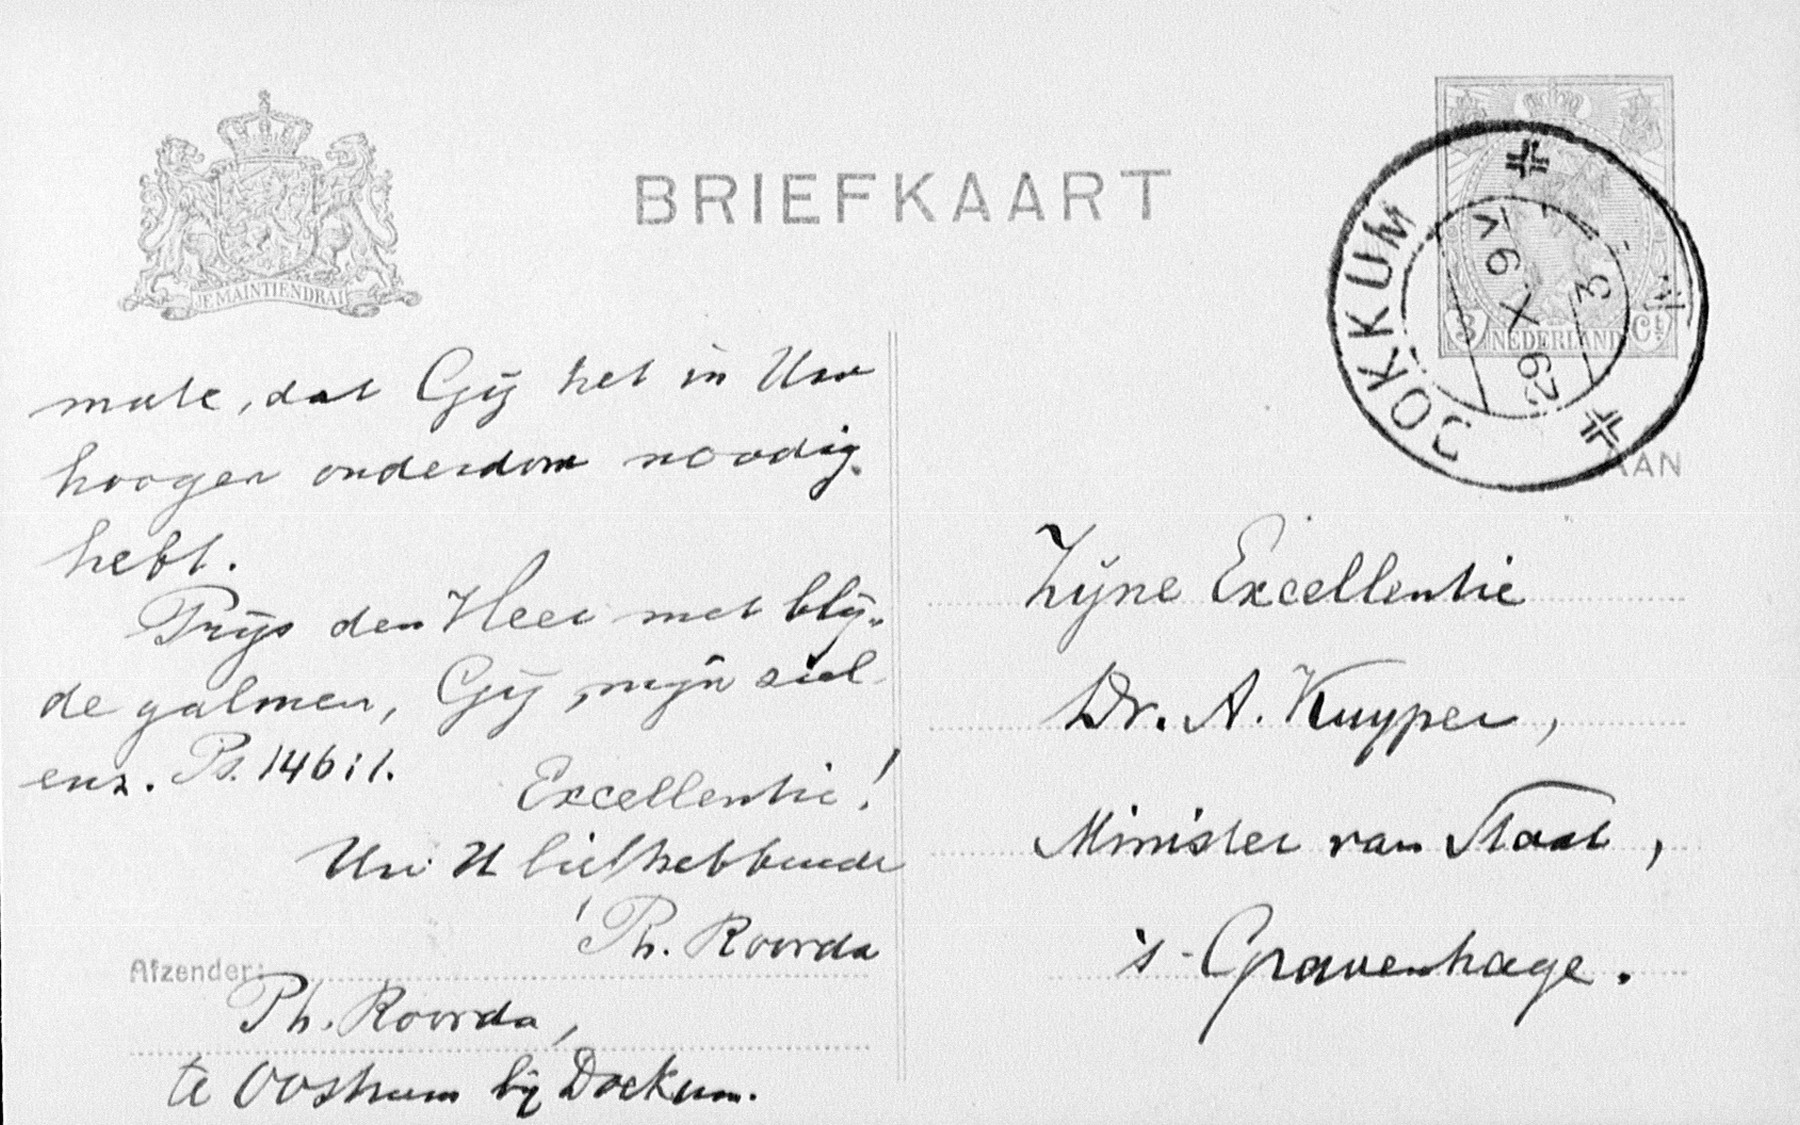 BRIEFKAART
JE MAINTIENDRAI
DOKKUM
29 X 9V
3
3 NEDERLAND Ct
AAN
mate, dat Gij het in Uw
hoogen ouderdom noodig
hebt.
Prijs den Heer met blij-
de galmen, Gij, mijn ziel
enz. Ps. 146:1.
Excellentie!
Uw U liefhebbende
Ph. Roorda
Afzender:
Ph. Roorda,
te Oostrum bij Dockum.
Zijne Excellentie
Dr. A. Kuyper,
Minister van Staat,
's-Gravenhage.